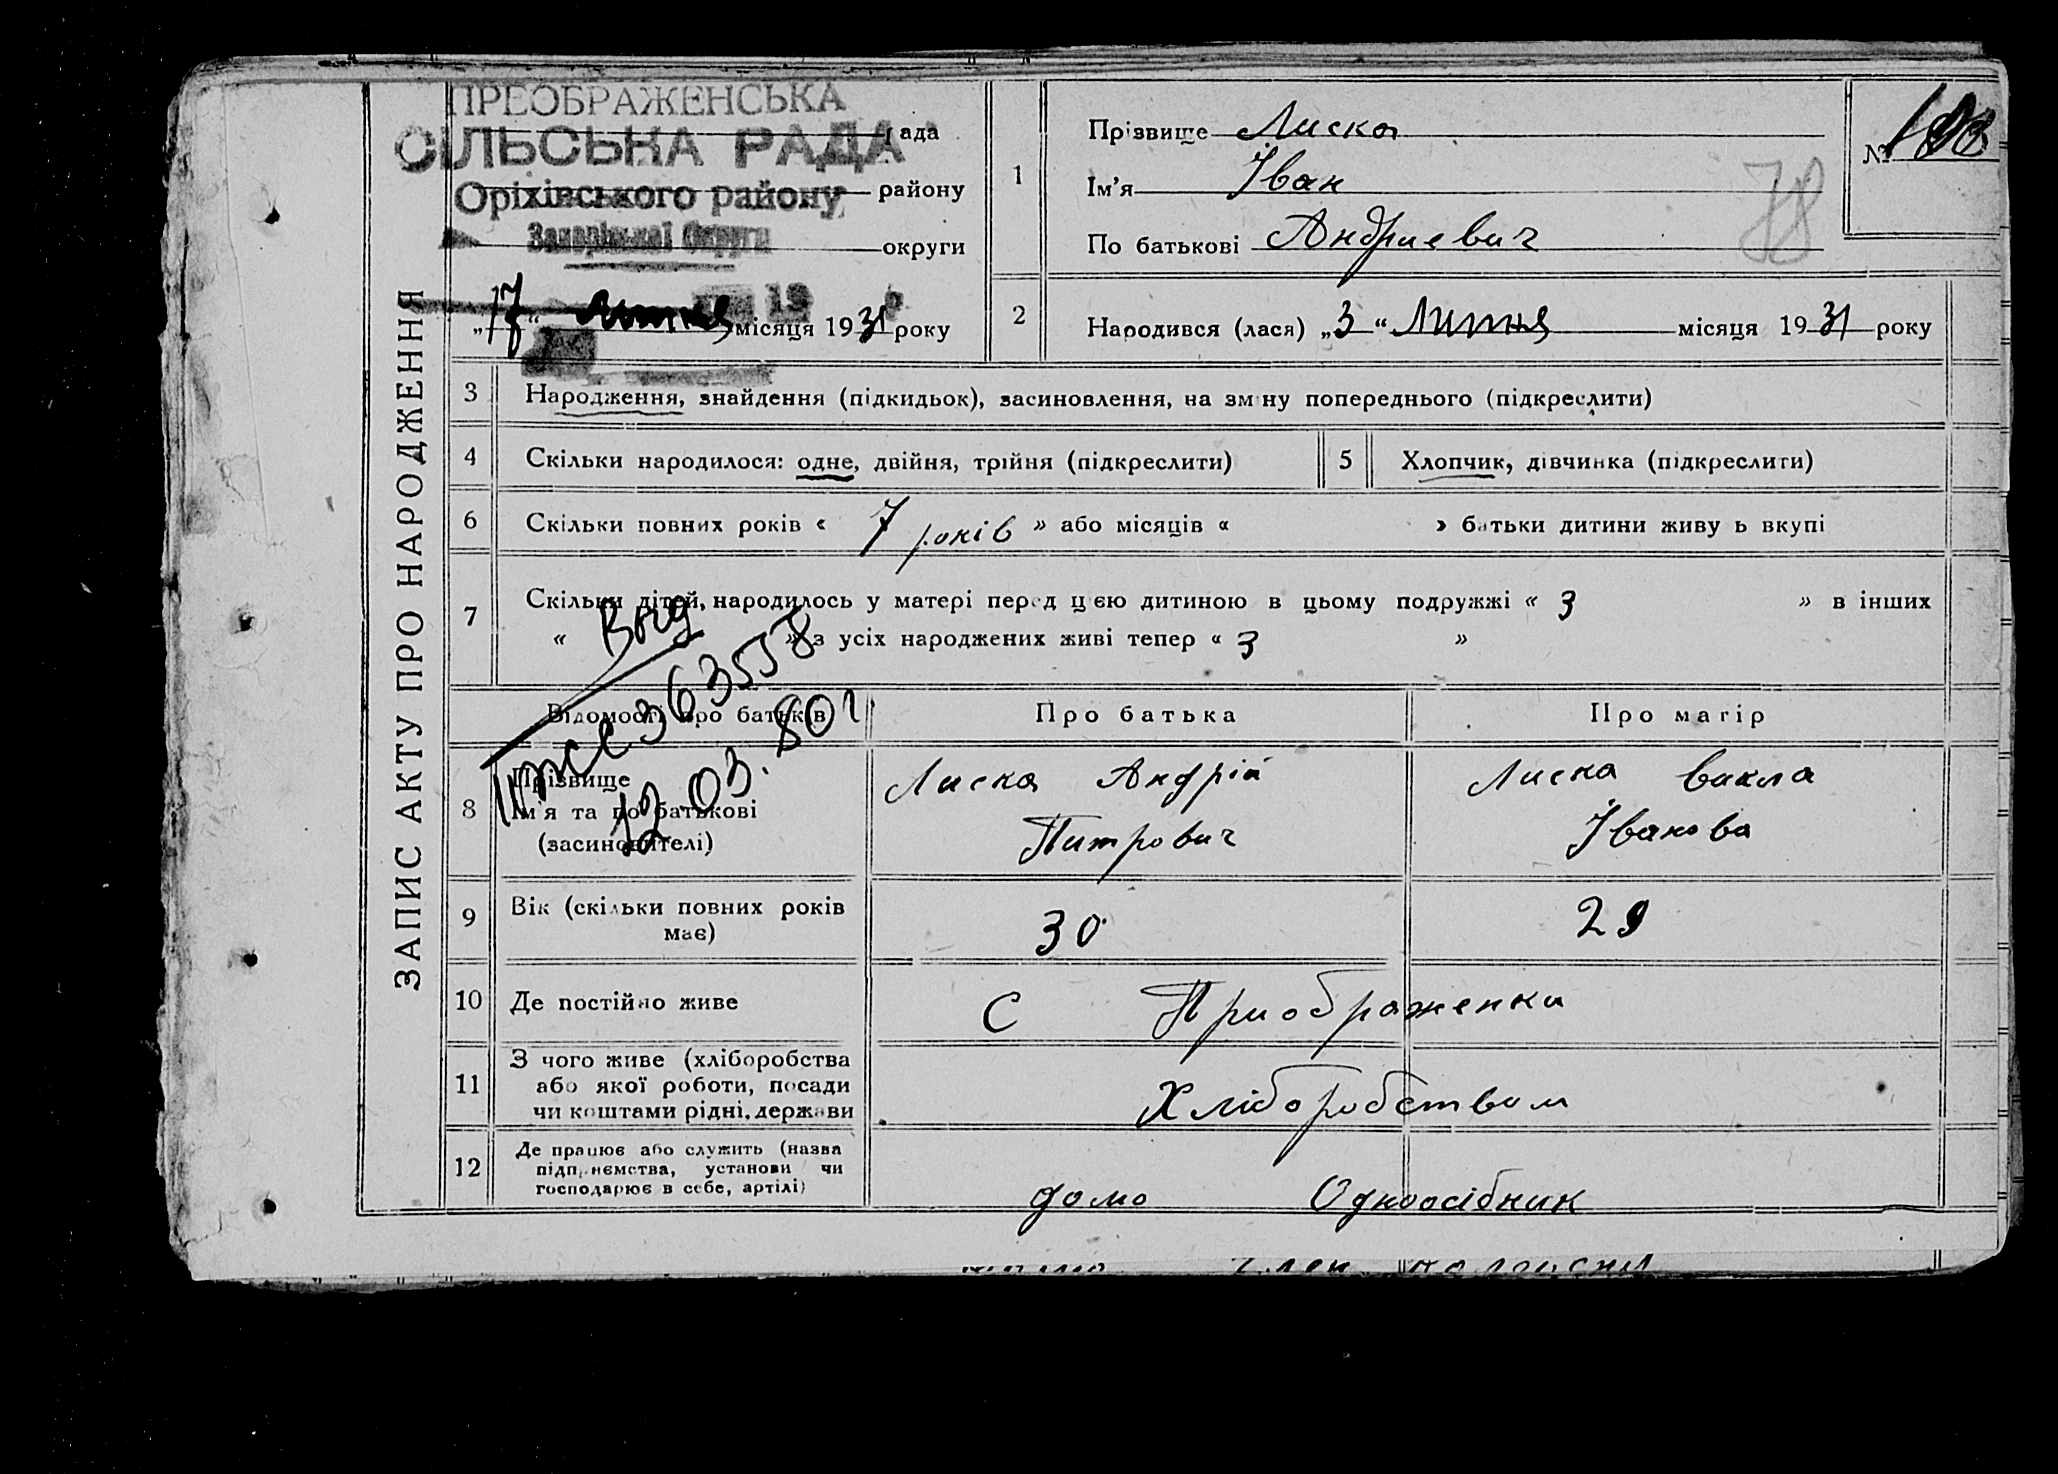 ЗАПИС АКТУ ПРО НАРОДЖЕННЯ
ПРЕОБРАЖЕНСЬКА
СІЛЬСЬКА РАДА рада
Оріхівського району району
Запорізької Округи округи
„17“ Литня місяця 1931 року
1 Прізвище Лиска
Ім’я Іван
По батькові Андриевич
№
78
2 Народився (лася) „3“ Литня місяця 1931 року
3 Народження, знайдення (підкидьок), засиновлення, на зміну попереднього (підкреслити)
4 Скільки народилося: одне, двійня, трійня (підкреслити) 5 Хлопчик, дівчинка (підкреслити)
6 Скільки повних років « 7 років » або місяців « » батьки дитини живуть вкупі
7 Скільки дітей, народилось у матері перед цією дитиною в цьому подружжі « 3 » в інших
« » з усіх народжених живі тепер « 3 »
Выд
363558
12.03.80 г
Відомості про батьків Про батька Про матір
8 Прізвище
Ім’я та по батькові
(засиновителі)
Лиска Андрій
Питрович
Лиска Викла
Іванова
9 Вік (скільки повних років
має)
30 29
10 Де постійно живе С Приображенки
11 З чого живе (хліборобства
або якої роботи, посади
чи коштами рідні, держави
Хліборобством
12 Де працює або служить (назва
підприємства, установи чи
господарює в себе, артілі)
дома Одноосібник